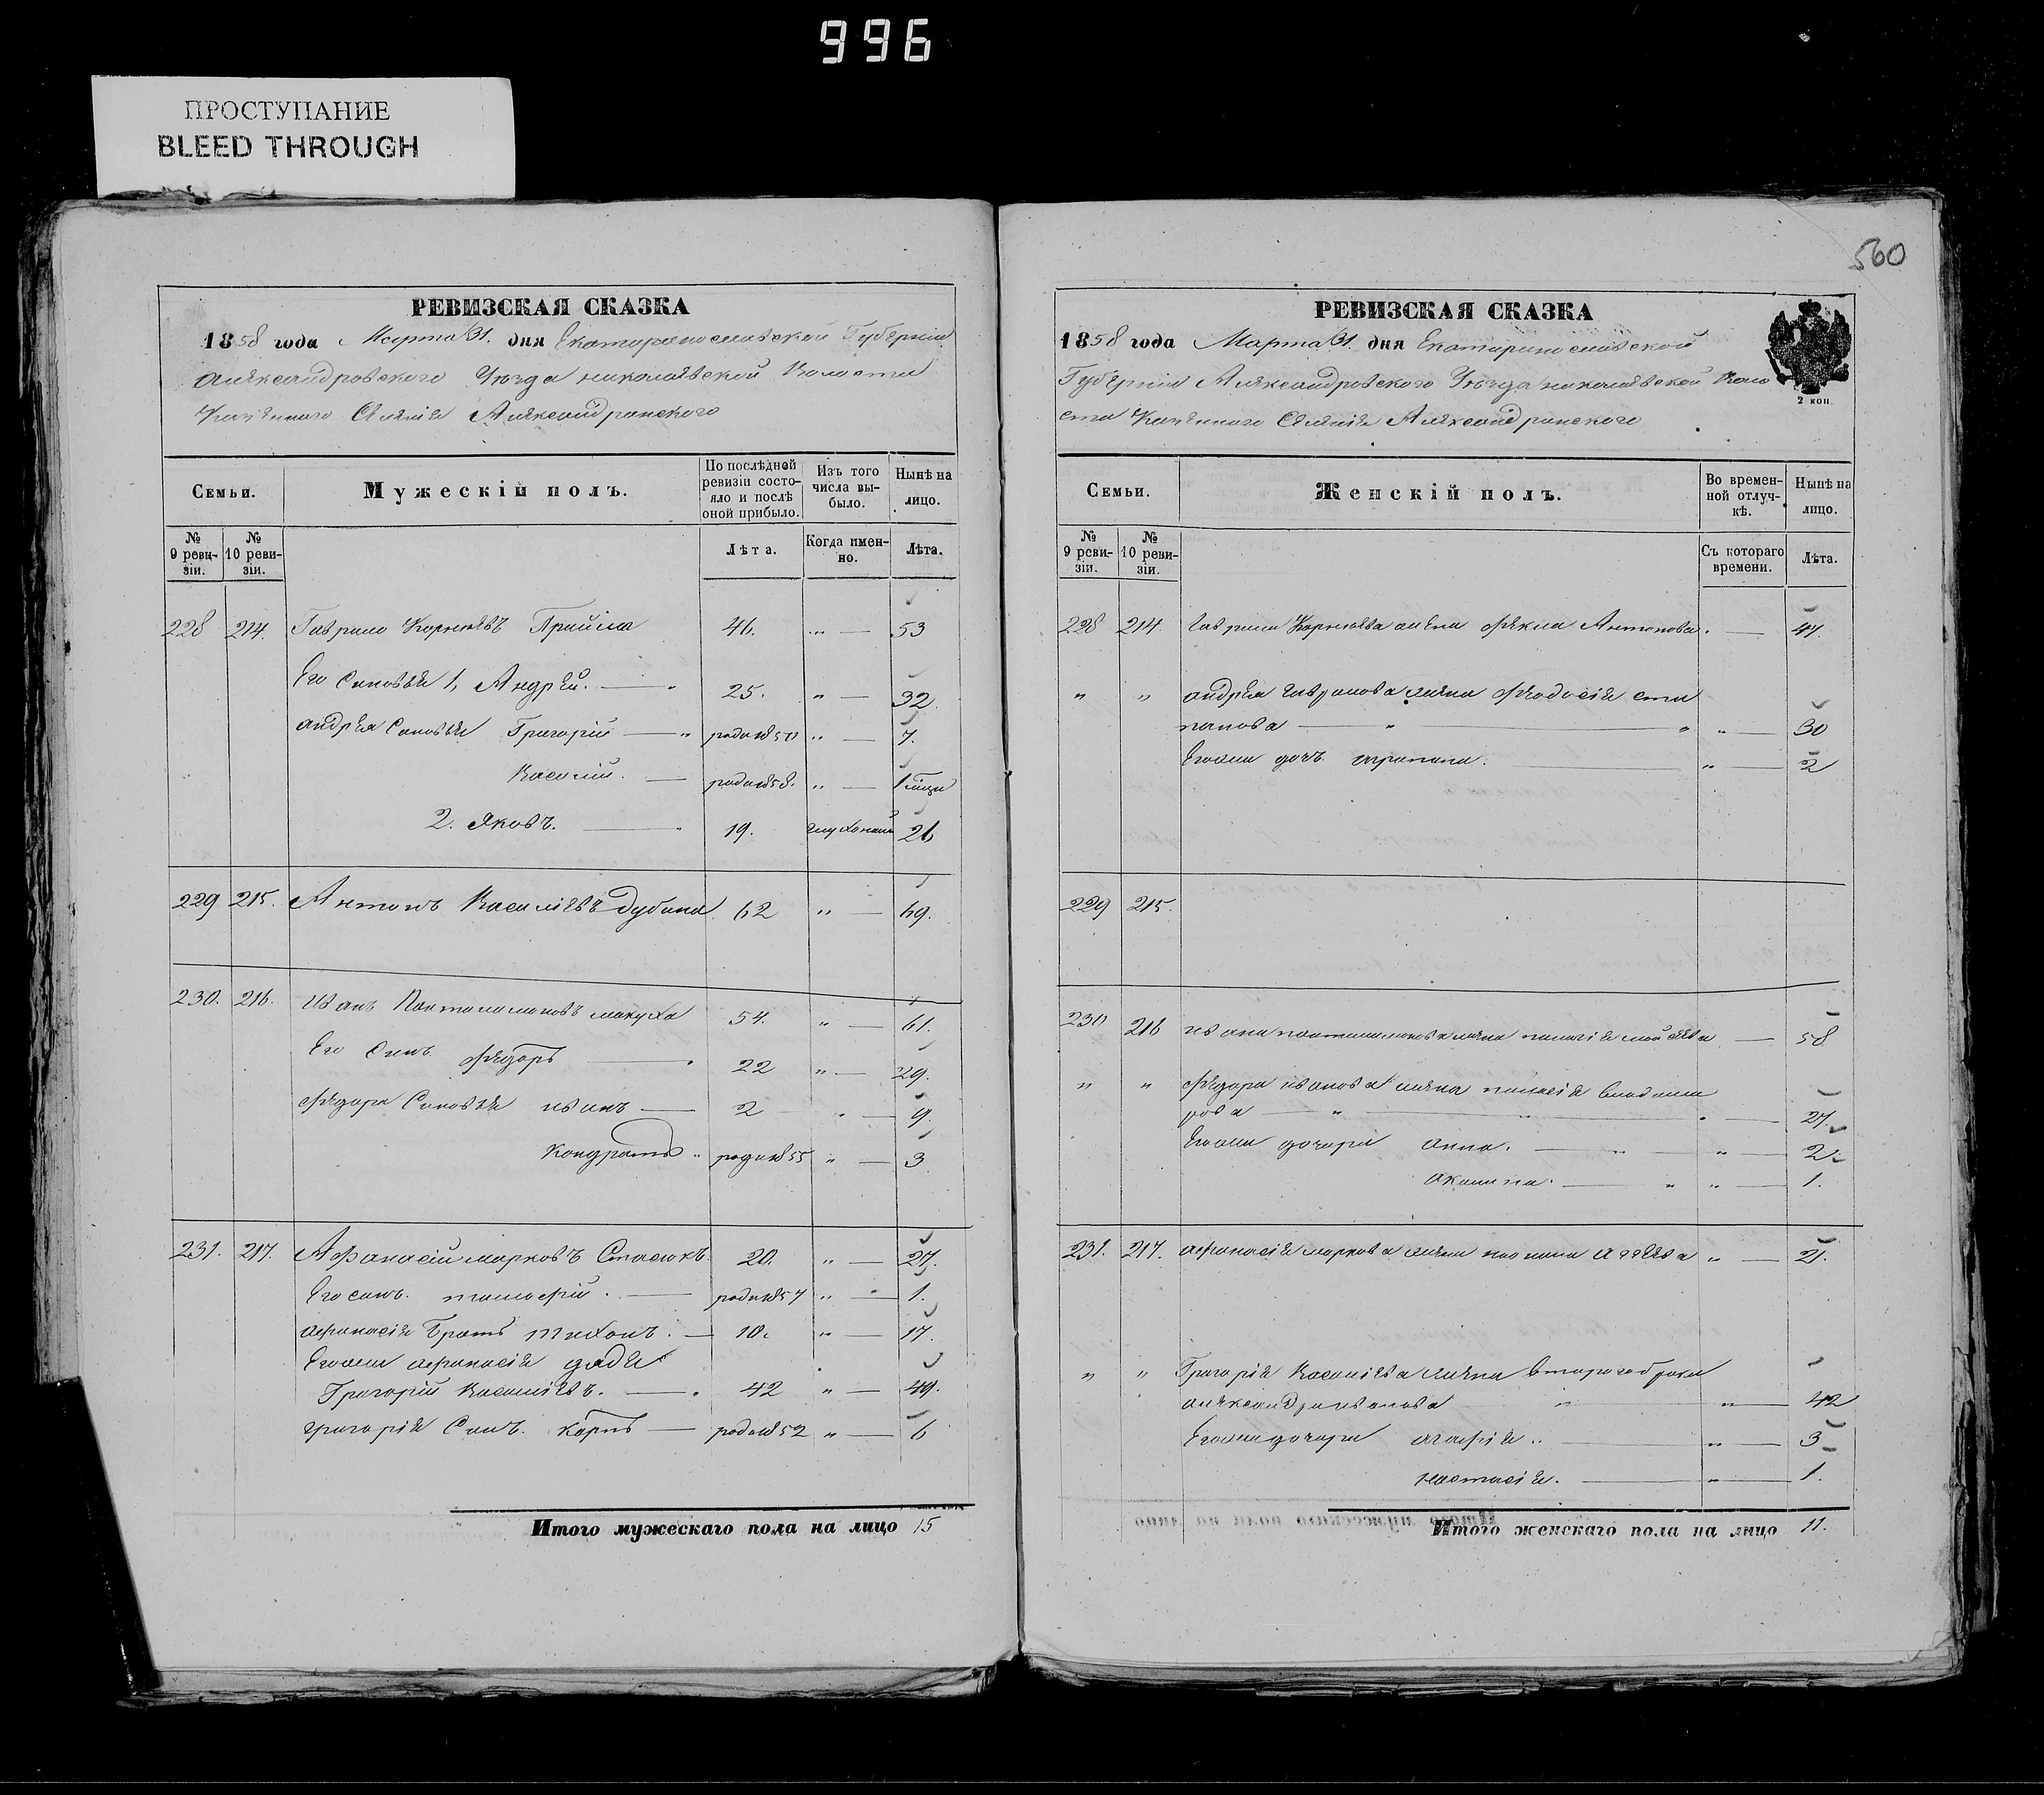 996
ПРОСТУПАНИЕ
BLEED THROUGH
560
РЕВИЗСКАЯ СКАЗКА
1858 года Марта 31. дня Екатеринославской Губернии
Александровского Уезда николаевской Волости
Казенного Селения Александровского
Семьи.
Мужескій полъ.
По послѣдней ревизіи состояло и послѣ оной прибыло.
Изъ того числа выбыло.
Нынѣ на лицо.
№ 9 ревизіи.
№ 10 ревизіи.
Лѣта.
Когда именно.
Лѣта.
228 214. Гаврило Корнѣевъ Прийма 46. " — 53
Его Сыновья 1, Андрей. — " 25. " — 32.
андрея Сыновья Григорій — " родил 1850 " — 7.
Василій. — родил 1858. " — 1 мѣсяц
2. Яковъ. — " 19. глухонѣмой 26
229 215. Антонъ Василіевъ Дубина 62 " — 69.
230. 216. Иванъ Пантилимоновъ макуха 54. " — 61.
Его Сынъ Федоръ — " 22 " — 29.
Федора Сыновья иванъ — 2 " — 9.
Кондратъ " родил 1855 " — 3
231. 217. Афанасій марковъ Стасюкъ. 20. " — 27.
Его сынъ. тимофій. — родил 1857 " — 1.
афанасія Братъ тихонъ. — 10. " — 17.
Егоже афанасія дядя
Григорій Василіевъ. — " 42 " — 49.
григорія Сынъ. Карпъ — родил 1852 " — 6
Итого мужескаго пола на лицо 15
РЕВИЗСКАЯ СКАЗКА
1858 года Марта 31. дня Екатеринославской
Губернии Александровского Уезда николаевской Воло
сти Казенного Селения Александровского
2 коп.
Семьи.
Женскій полъ.
Во временной отлучкѣ.
Нынѣ на лицо.
№ 9 ревизіи.
№ 10 ревизіи.
Съ котораго времени.
Лѣта.
228 214. Гаврила Корнѣева жена Фекла Антонова. — 47.
" " андрея гаврилова жена Феодосія сте
панова — " " " — 30
Егоже дочь — " — 2
229 215.
230 216 ивана пантилимонова жена пелагія мойсѣева — 58
" " Федора иванова жена Владими
рова — " " — 27.
Егоже дочери анна. — " — " — 2.
акилина. — " " — 1.
231. 217. афанасія маркова жена " — 21.
" " Григорія Василіева жена втораго брака
александра иванова " " — 42
Егоже дочери агафія. — " — 3
настасія. — " — 1.
Итого женскаго пола на лицо 11.